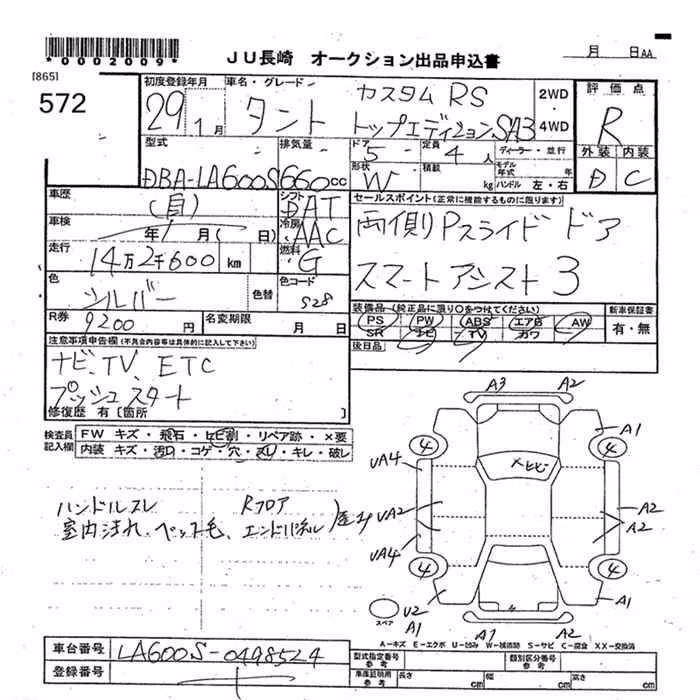 *0002009*
JU長崎 オークション出品申込書
月 日AA
[865]
572
初度登録年月
29年1月
車名・グレード
タント
カスタム RS
トップエディションSA3
2WD・4WD
評価点
R
外装 内装
D C
型式
DBA-LA600S
排気量
660cc
ドア 5
定員 4人
ディーラー・並行
形状 W
積載 kg
モデル年式 年
ハンドル 左・右
車歴
(自)
シフト DAT
冷房 AAC
燃料 G
車検
年 月( 日)
走行
14万2千600 km
色
シルバー
色替
色コード
S28
R券
9200円
名変期限 月 日
セールスポイント(正常に機能するものに限ります)
両側Pスライドドア
スマートアシスト3
装備品(純正品に限り○をつけてください)
PS PW ABS エアB AW
SR ナビ TV カワ
新車保証書
有・無
後日品
注意事項申告欄(不具合内容等は具体的に記入して下さい)
ナビ、TV、ETC
プッシュスタート
修復歴 有 [箇所 ]
検査員記入欄
FW キズ・飛石・ヒビ割・リペア跡・×要
内装 キズ・汚れ・コゲ・穴・スレ・キレ・破レ
ハンドルスレ
室内汚れ、ペット毛、
Rフロア
エンドパネル
A3 A2
A1
4 4
UA4
×ヒビ
UA2
A2
A2
UA4
4 4
U2
A1
A1
A1 A2
スペア
A-キズ E-エクボ U-凹み W-補修跡 S-サビ C-腐食 XX-交換済
車台番号
LA600S-0498524
登録番号
型式指定番号 参考
類別区分番号 参考
車庫証明用 参考
長さ cm
幅 cm
高さ cm